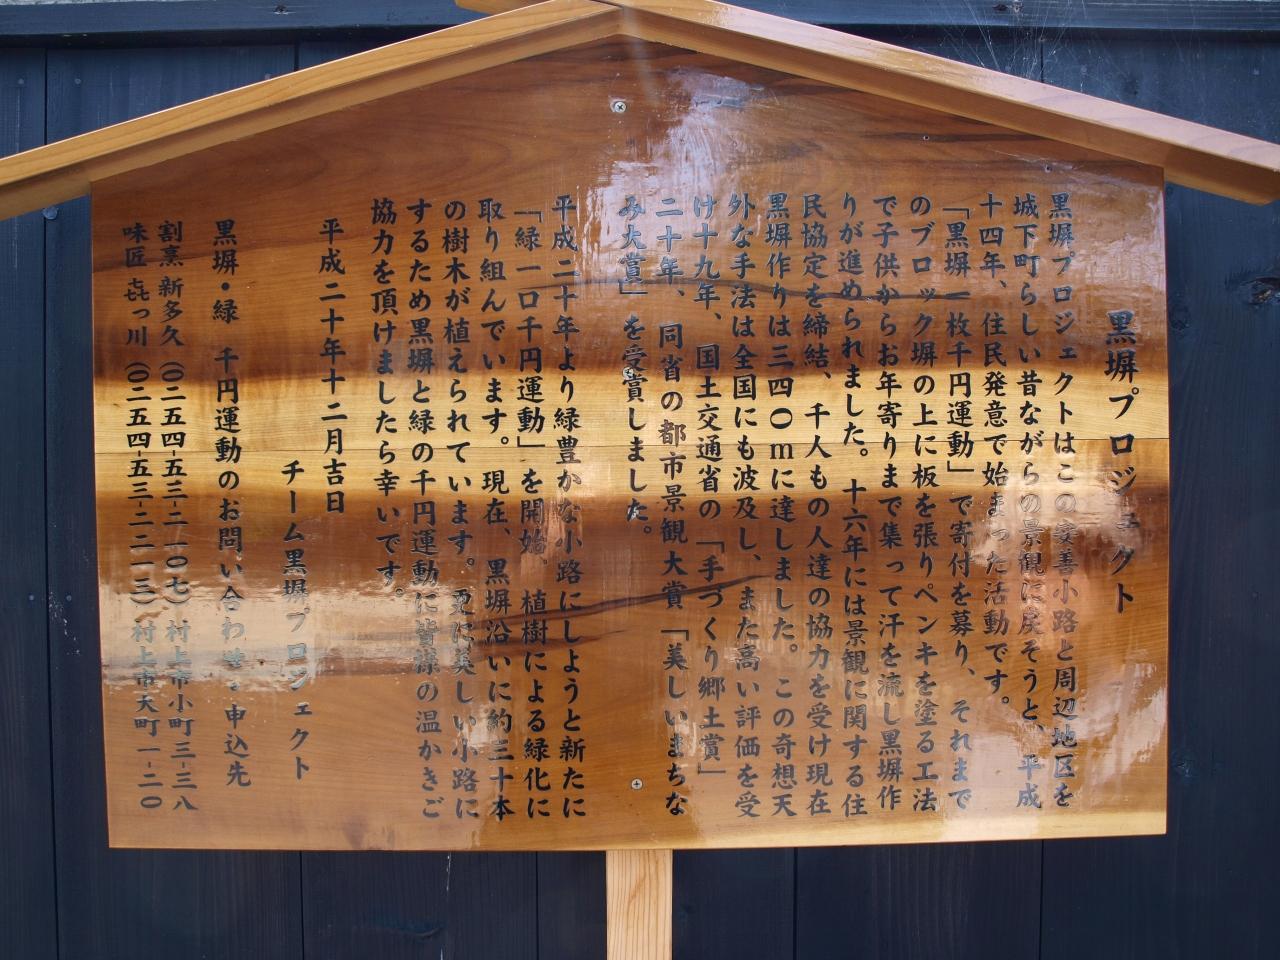 黒塀プロジェクト
黒塀プロジェクトはこの安善小路と周辺地区を
城下町らしい昔ながらの景観に戻そうと、平成
十四年、住民発意で始まった活動です。
「黒塀一枚千円運動」で寄付を募り、それまで
のブロック塀の上に板を張りペンキを塗る工法
で子供からお年寄りまで集って汗を流し黒塀作
りが進められました。十六年には景観に関する住
民協定を締結、千人もの人達の協力を受け現在
黒塀作りは三四〇mに達しました。この奇想天
外な手法は全国にも波及し、また高い評価を受
け十九年、国土交通省の「手づくり郷土賞」
二十年、同省の都市景観大賞「美しいまちな
み大賞」を受賞しました。
平成二十年より緑豊かな小路にしようと新たに
「緑一口千円運動」を開始、植樹による緑化に
取り組んでいます。現在、黒塀沿いに約三十本
の樹木が植えられています。更に美しい小路に
するため黒塀と緑の千円運動に皆様の温かきご
協力を頂けましたら幸いです。
平成二十年十二月吉日
チーム黒塀プロジェクト
黒塀・緑 千円運動のお問い合わせ・申込先
割烹新多久(〇二五四-五三-二一〇七)村上市小町三-三八
味匠㐂っ川(〇二五四-五三-二二一三)村上市大町一-二〇